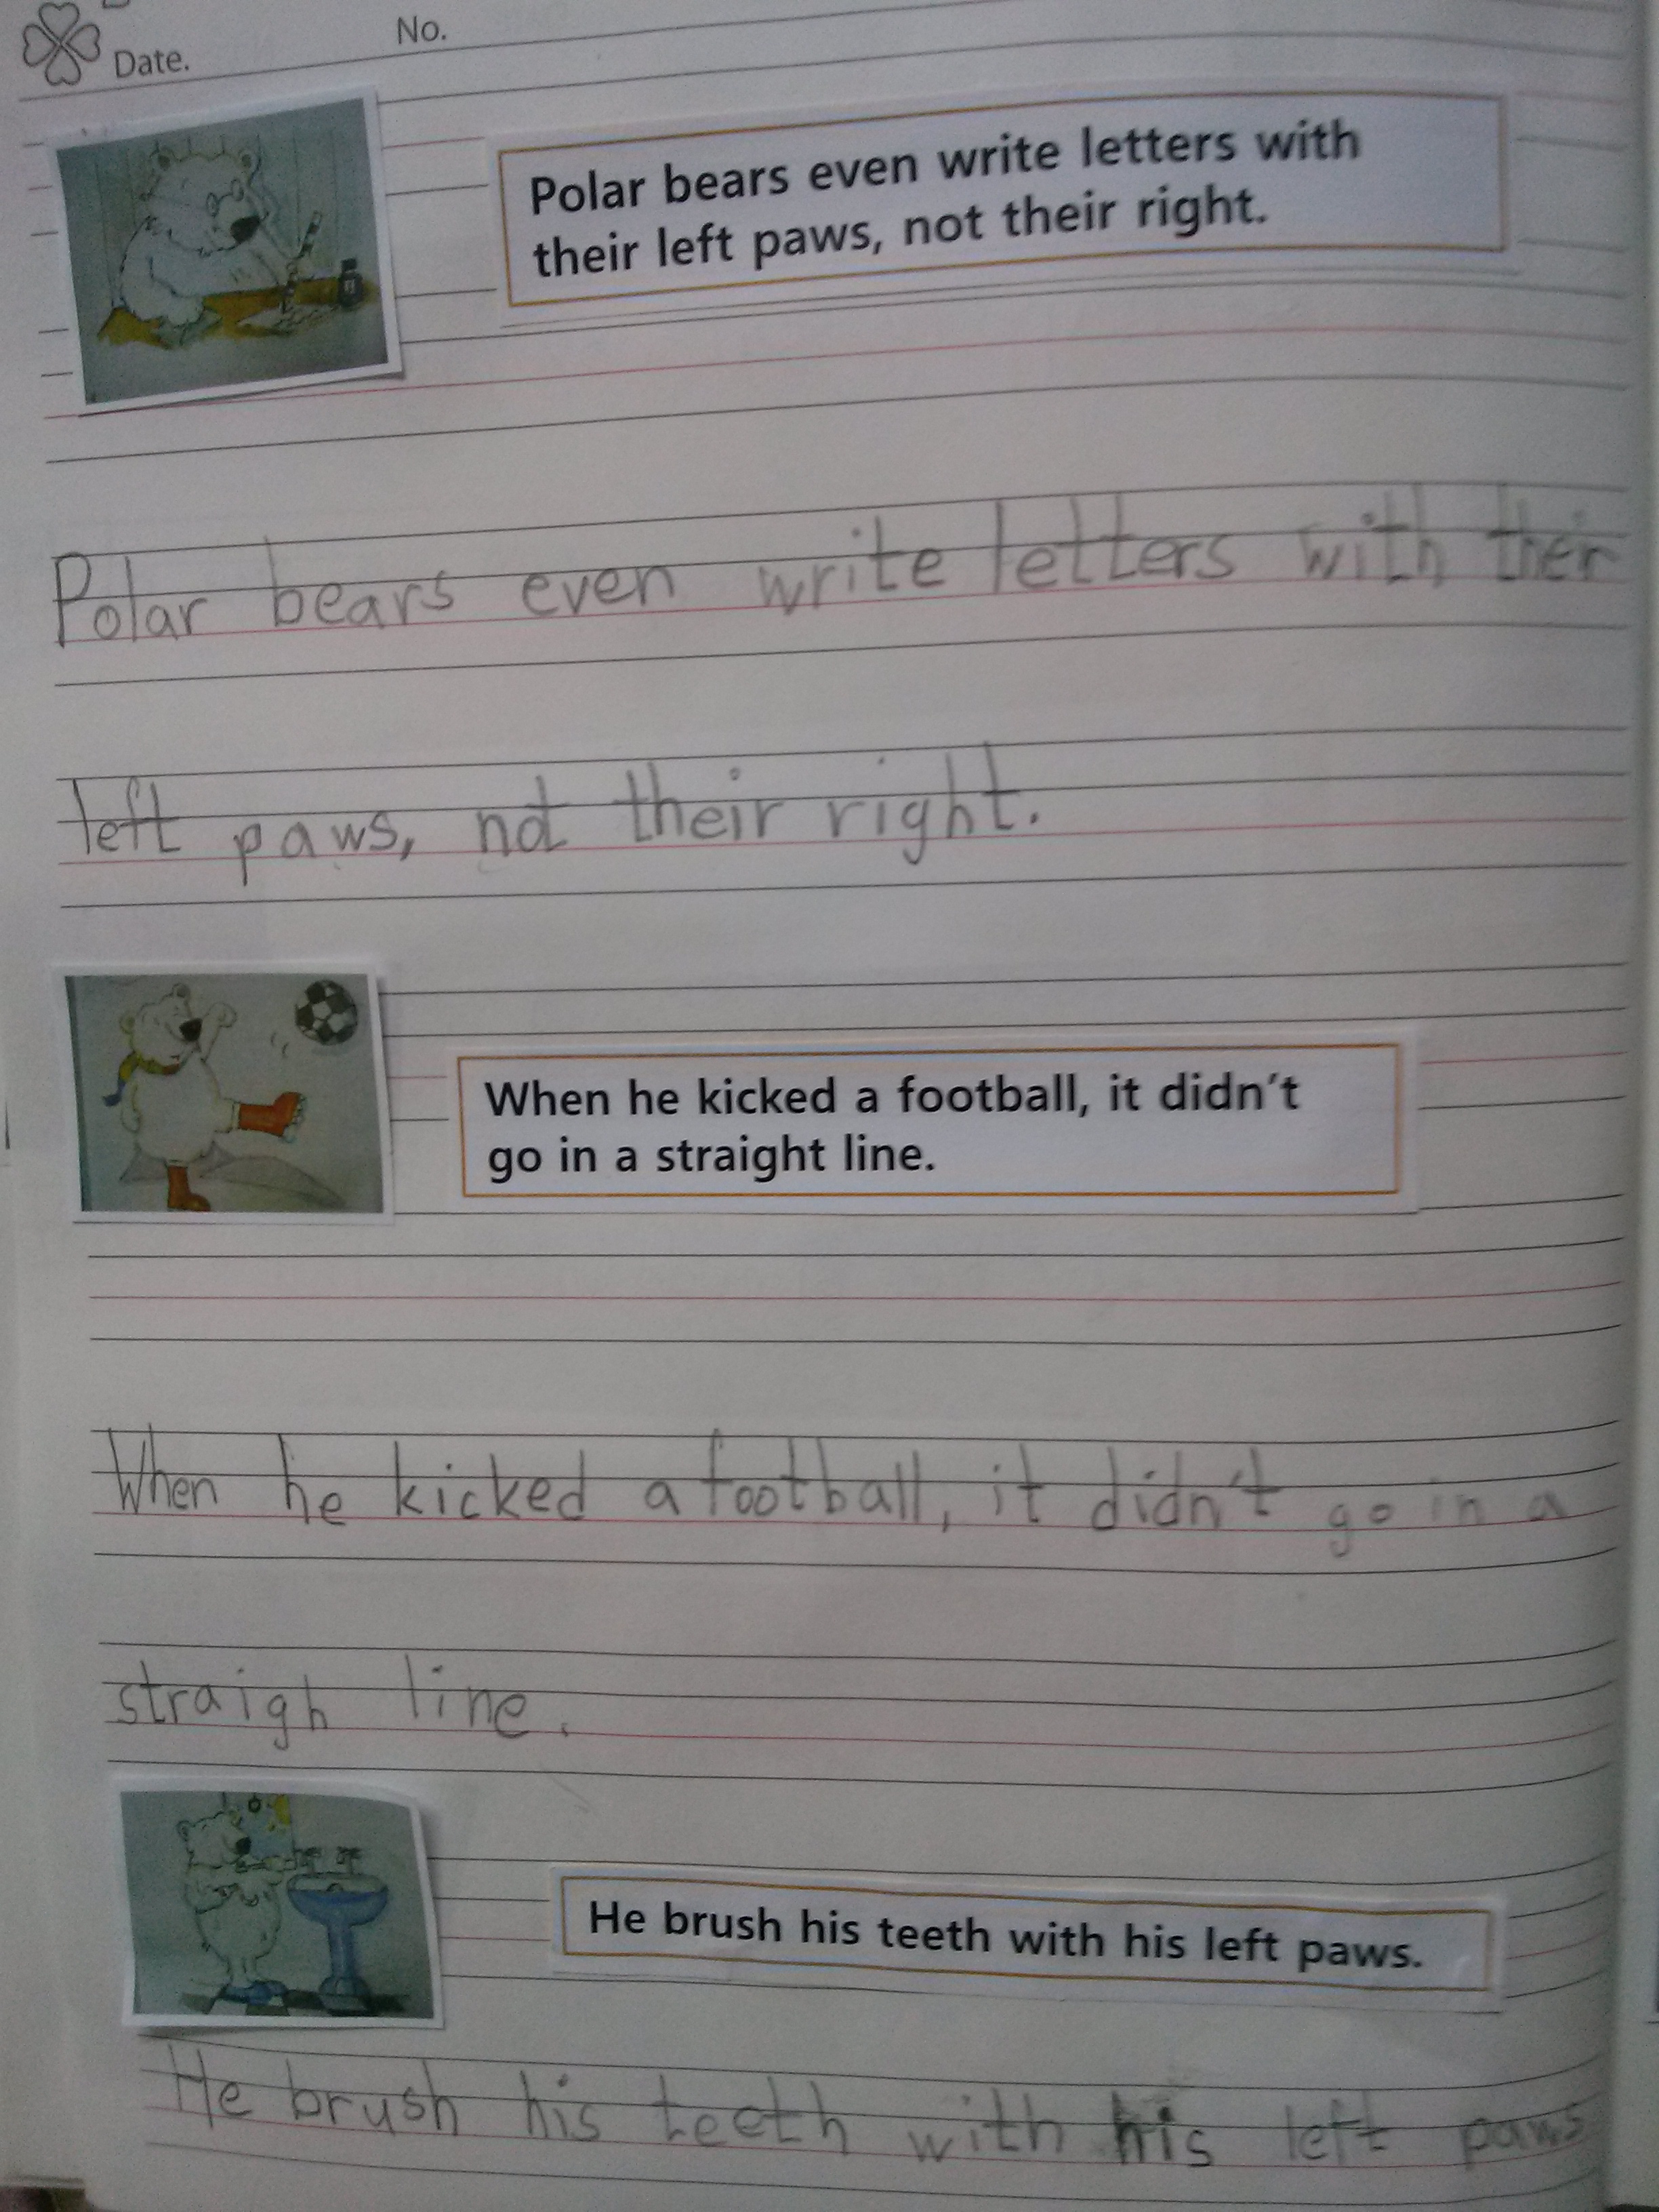 No.
Date.
Polar bears even write letters with
their left paws, not their right.
Polar bears even write letters with their
left paws, not their right.
When he kicked a football, it didn't
go in a straight line.
When he kicked a football, it didn't go in a
straigh line.
He brush his teeth with his left paws.
He brush his teeth with his left paws